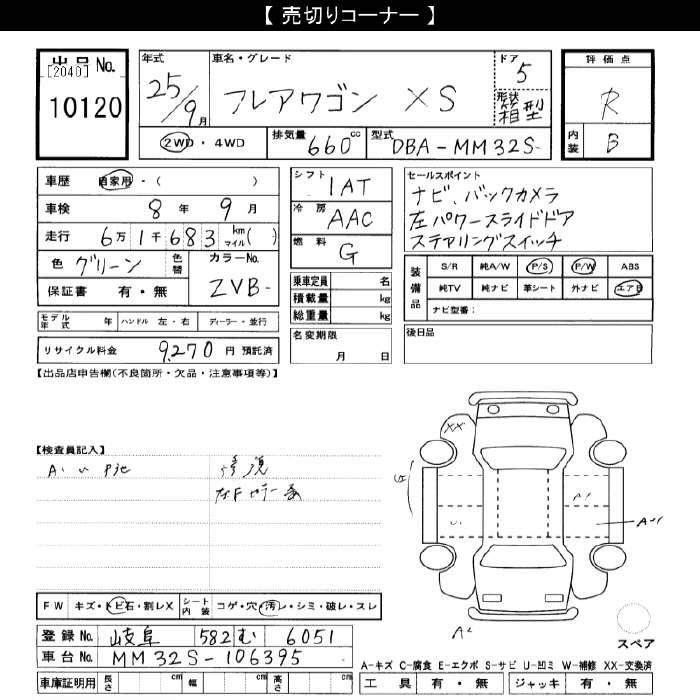 【 売切りコーナー 】
出品 No.
[2040]
10120
年式
25/9月
車名・グレード
フレアワゴン XS
ドア
5
形状
箱型
評価点
R
内装
B
2WD・4WD
排気量
660cc
型式
DBA-MM32S-
車歴 自家用・( )
車検 8年 9月
走行 6万1千683 km マイル( )
色 グリーン 色替 カラーNo. ZVB-
保証書 有・無
モデル年式 年 ハンドル 左・右 ディーラー・並行
リサイクル料金 9,270 円 預託済
シフト 1AT
冷房 AAC
燃料 G
乗車定員 名
積載量 kg
総重量 kg
名変期限
月 日
セールスポイント
ナビ、バックカメラ
左パワースライドドア
ステアリングスイッチ
装備品
S/R 純A/W P/S P/W ABS
純TV 純ナビ 革シート 外ナビ エアB
ナビ型番:
後日品
【出品店申告欄(不良箇所・欠品・注意事項等)】
【検査員記入】
XX
A2
FW キズ・トビ石・割レX シート内装 コゲ・穴・汚レ・シミ・破レ・スレ
登録No. 岐阜 582 む 6051
車台No. MM32S-106395
車庫証明用 長さ cm 幅 cm 高さ cm
スペア
A-キズ C-腐食 E-エクボ S-サビ U-凹ミ W-補修 XX-交換済
工具 有・無 ジャッキ 有・無